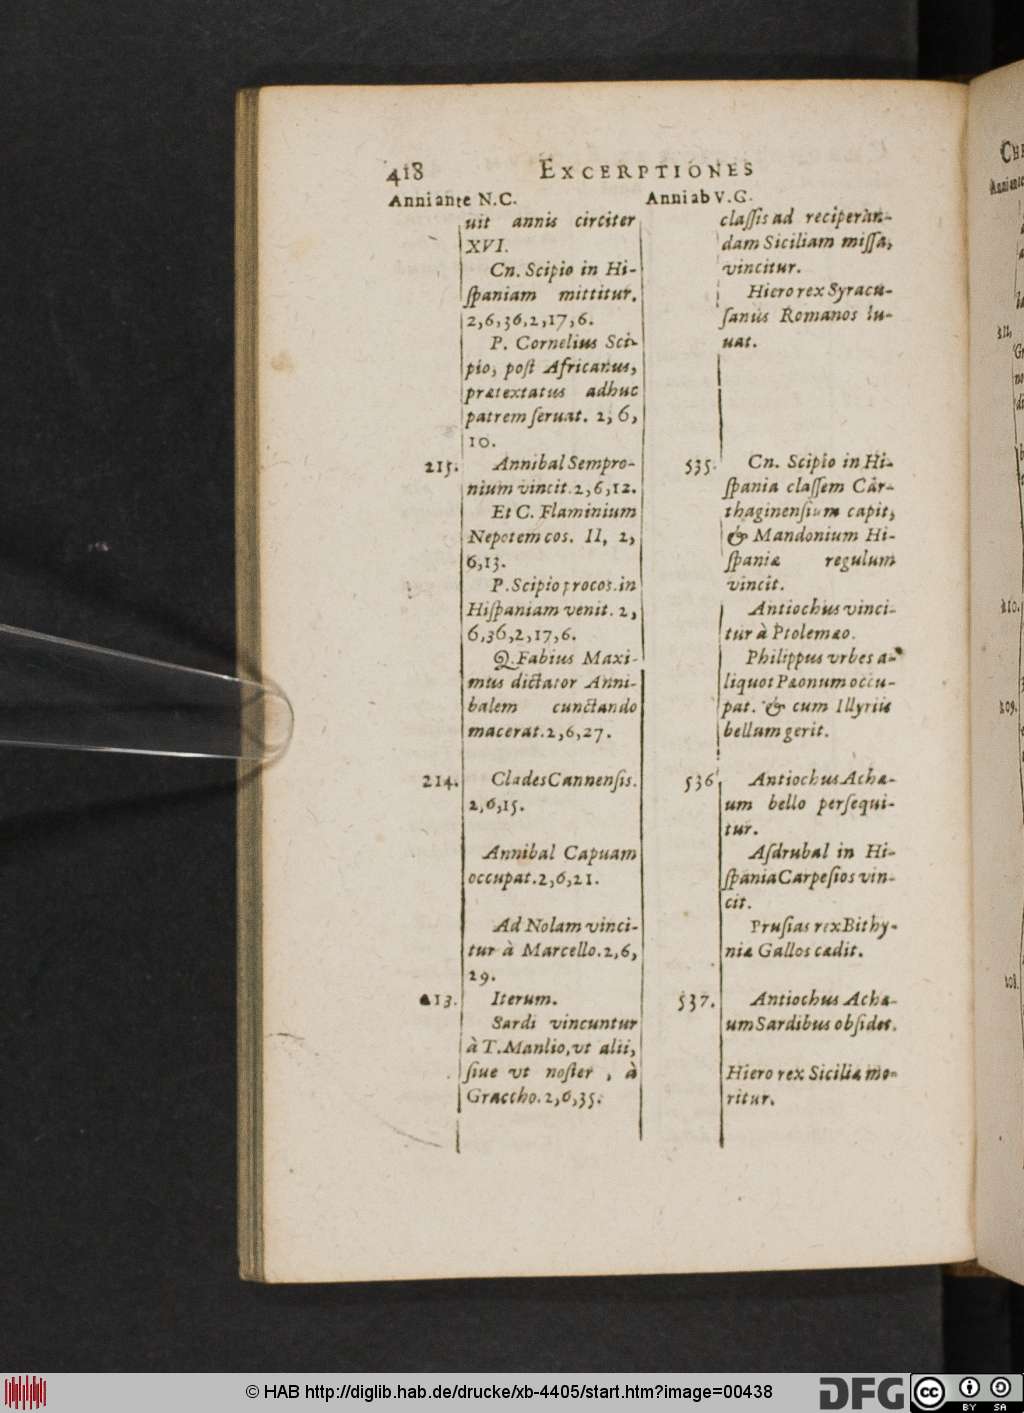 418 EXCERPTIONES
Anni ante N.C. Anni ab V.G.
uit annis circiter
XVI.
Cn. Scipio in Hi-
ſpaniam mittitur.
2,6,36,2,17,6.
P. Cornelius Sci-
pio, poſt Africanus,
prætextatus adhuc
patrem ſeruat. 2, 6,
10.
215. Annibal Sempro-
nium vincit. 2,6,12.
Et C. Flaminium
Nepotem cos. II, 2,
6,13.
P. Scipio procos. in
Hiſpaniam venit. 2,
6,36,2,17,6.
Q. Fabius Maxi-
mus dictator Anni-
balem cunctando
macerat. 2,6,27.
214. Clades Cannenſis.
2,6,15.
Annibal Capuam
occupat. 2,6,21.
Ad Nolam vinci-
tur à Marcello. 2,6,
29.
213. Iterum.
Sardi vincuntur
à T. Manlio, vt alii,
ſiue vt noſter , à
Graccho. 2,6,35.
claſſis ad reciperan-
dam Siciliam miſſa,
vincitur.
Hiero rex Syracu-
ſanus Romanos iu-
uat.
535. Cn. Scipio in Hi-
ſpania claſſem Car-
thaginenſium capit,
& Mandonium Hi-
ſpaniæ regulum
vincit.
Antiochus vinci-
tur à Ptolemæo.
Philippus vrbes a-
liquot Pæonum occu-
pat. & cum Illyriis
bellum gerit.
536 Antiochus Achæ-
um bello perſequi-
tur.
Aſdrubal in Hi-
ſpania Carpeſios vin-
cit.
Pruſias rex Bithy-
niæ Gallos cædit.
537. Antiochus Achæ-
um Sardibus obſidet.
Hiero rex Siciliæ mo-
ritur.
© HAB http://diglib.hab.de/drucke/xb-4405/start.htm?image=00438
DFG
cc BY SA